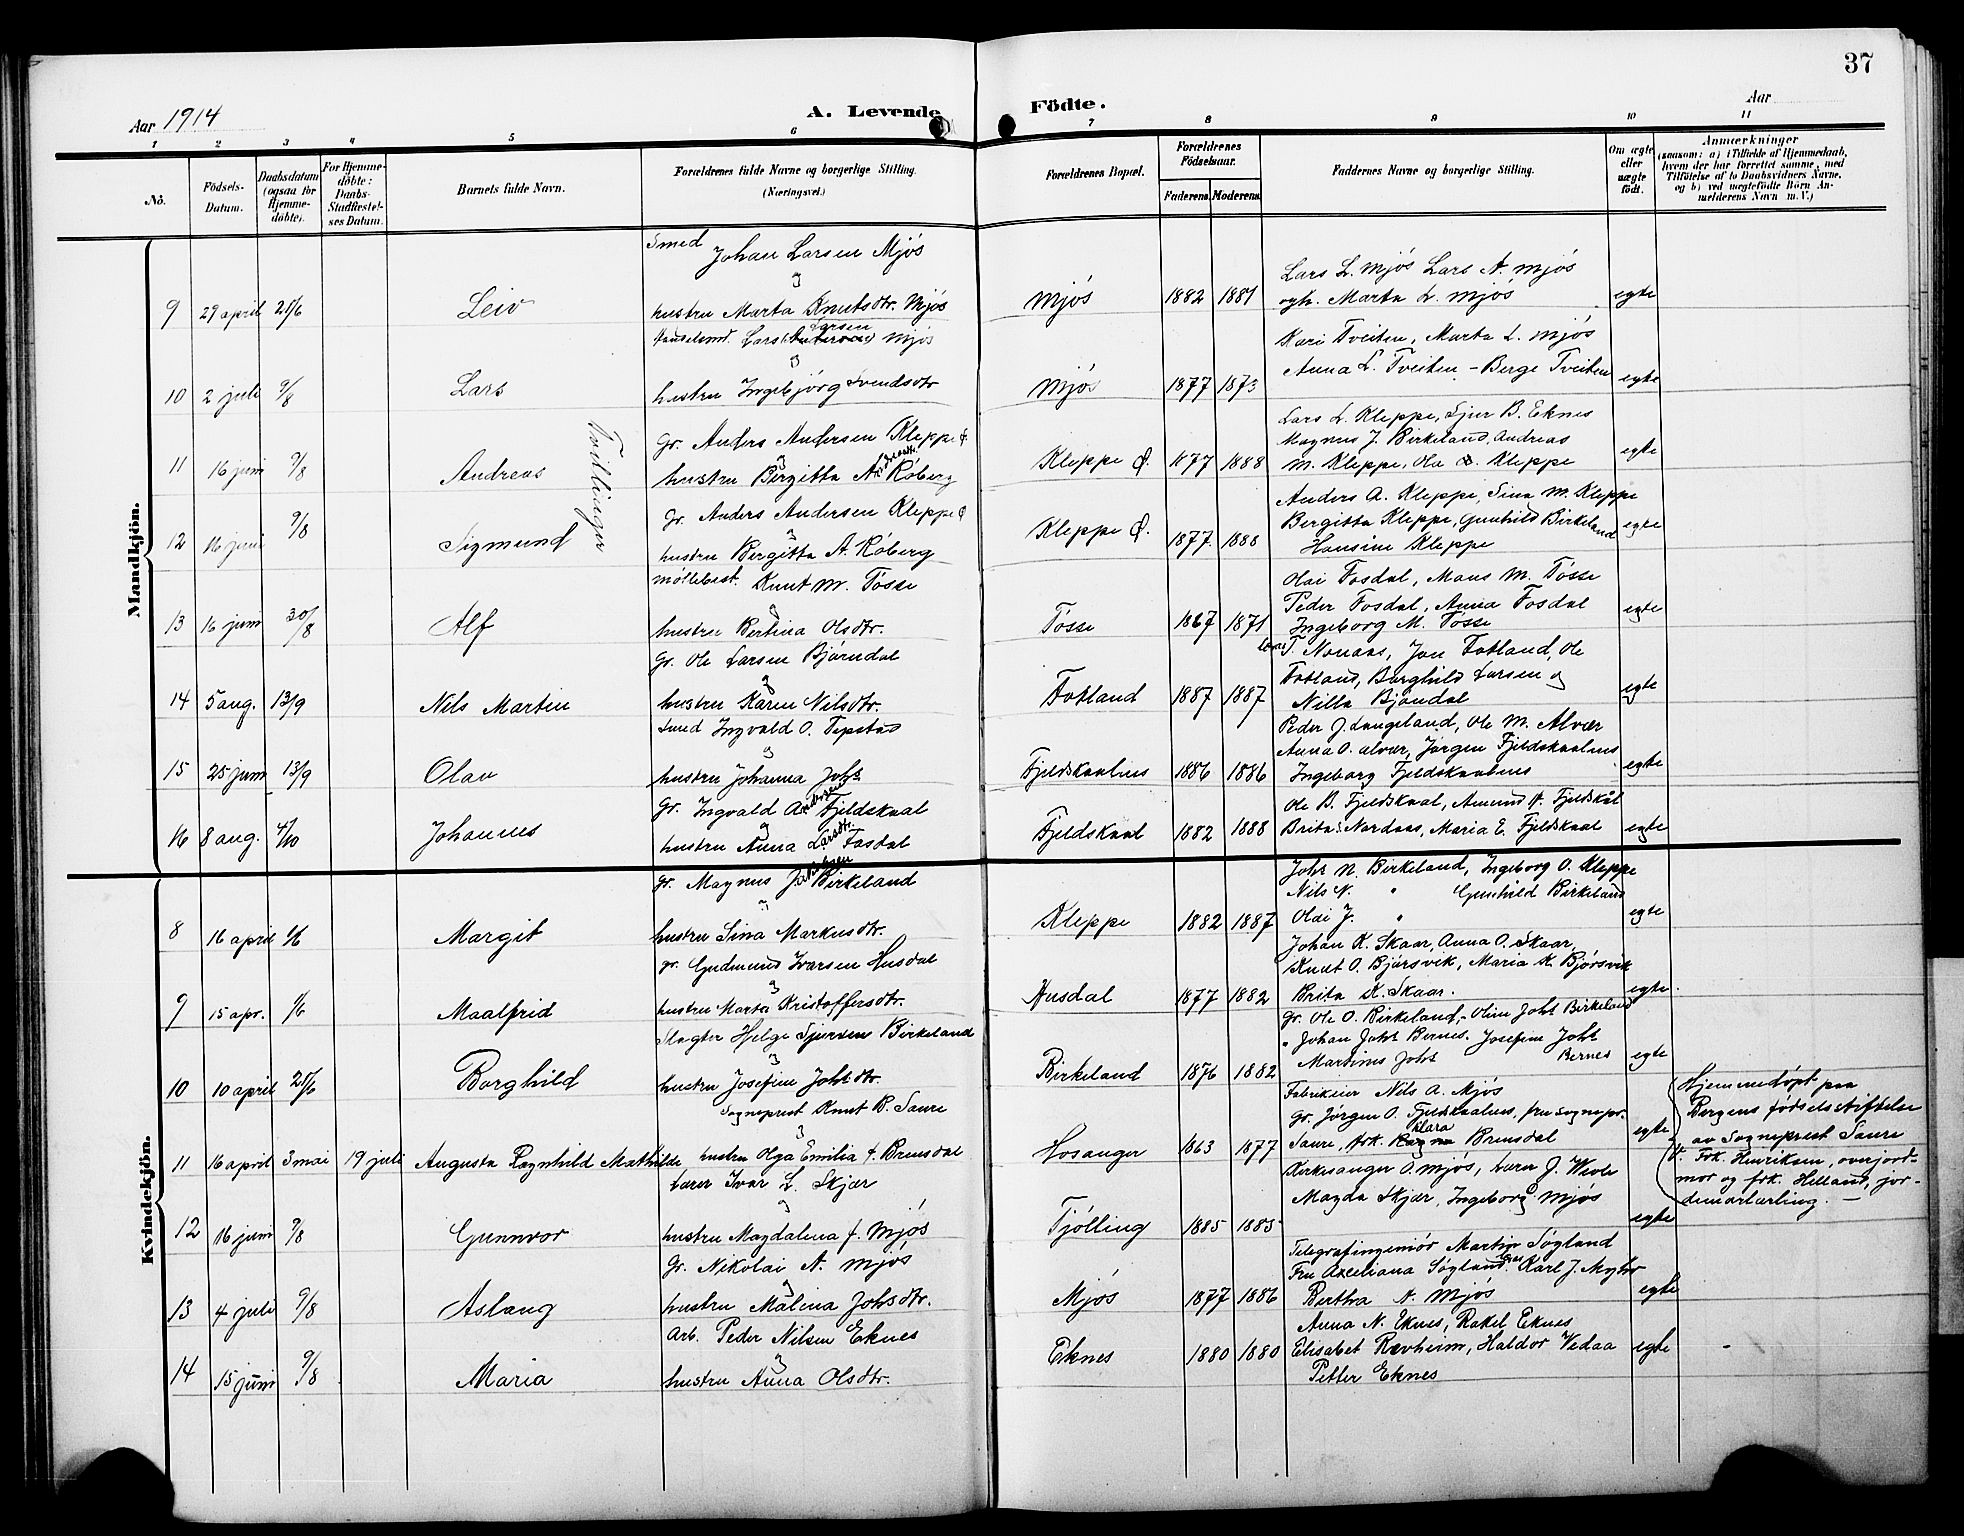 37
Aar 1914
A. Levende Födte.
Aar
1 2 3 4 5 6 7 8 9 10 11
Nö.
Födsels-Datum.
Daabsdatum (ogsaa for Hjemme-döbte).
For Hjemme-döbte: Daabs-Stadfæstel-ses Datum.
Barnets fulde Navn.
Forældrenes fulde Navne og borgerlige Stilling. (Næringsvei.)
Forældrenes Bopæl.
Forældrenes Födselsaar.
Faderens. Moderens.
Faddernes Navne og borgerlige Stilling.
Om ægte eller uægte födt.
Anmærkninger
(saasom: a) i Tilfælde af Hjemmedaab, hvem der har forrettet samme, med Tilföielse af to Daabsvidners Navne, og b) ved uægtefödte Börn An-melderens Navn m. V.)
Mandkjön.
Smed Johan Larsen Mjøs
og
9 29 april 21/6 Leiv hustru Marta Knutsdtr. Mjøs
Mjøs 1882 1881
Lars L. Mjøs Lars A. Mjøs
ogh. Marta L. Mjøs egte
Lars Larsen Mjøs
og
10 2 juli 9/8 Lars hustru Ingebjørg Svendsdtr
Mjøs 1877 1873
Kari Tveiten, Marta L. Mjøs
Anna L. Tveiten - Berge Tveiten egte
Tvillinger
Gr. Anders Andersen Kleppe Ø.
og
11 16 juni 9/8 Andreas hustru Bergitta Røberg
Kleppe Ø. 1877 1888
Lars L. Kleppe, Sjur B. Eknes
Magnus J. Birkeland, Andreas
M. Kleppe, Ola Kleppe egte
Gr. Anders Andersen Kleppe Ø
og
12 16 juni 9/8 Sigmund hustru Bergitta A. Røberg
Kleppe Ø. 1877 1888
Anders A. Kleppe, Sina M. Kleppe
Bergitta Kleppe, Gunhild Birkeland
Hansine Kleppe egte
Møllebest. Knut M. Tøsse
og
13 16 juni 30/8 Alf hustru Bertina Olsdtr.
Tøsse 1867 1871
Olai Fosdal, Mons M. Tøsse
Peder Fosdal, Anna Fosdal
Ingeborg M. Tøsse egte
Gr. Ole Larsen Bjørndal
og
14 5 aug. 13/9 Nils Martin hustru Karen Nilsdtr.
Fotland 1887 1887
Jon Fotland, Ole
Fotland, Borghild Larsen og
Nilla Bjøndal egte
Smed Ingvald O. Tepstad
og
15 25 juni 13/9 Olav hustru Johanna Johs
Fjeldskaalnes 1886 1886
Peder J. Langeland, Ole M. Alvær
Anna O. Alvær, Jørgen Fjeldskaalnes
Ingeborg Fjeldskaalnes egte
Gr. Ingvald Andersen Fjeldskaal
og
16 8 aug. 4/10 Johannes hustru Anna Larsdtr. Fosdal
Fjeldskaal 1882 1888
Ole B. Fjeldskaal, Amund A. Fjeldskål
Brita Nordaas, Maria E. Fjeldskaal egte
Kvindekjön.
gr. Magnus Jakobsen Birkeland
og
8 16 april 1/6 Margit hustru Sina Markusdtr.
Kleppe 1882 1887
Johs N. Birkeland, Ingeborg O. Kleppe
Nils N. " Gunhild Birkeland
Olai J. " egte
gr. Gudmund Ivarsen Husdal
og
9 15 apr. 1/6 Maalfrid hustru Marta Kristoffersdtr.
Husdal 1877 1882
Johan K. Skaar, Anna O. Skaar,
Knut O. Bjørsvik, Maria K. Bjørsvik
Brita K. Skaar. egte
Slagter Helge Sjursen Birkeland
og
10 10 april 21/6 Borghild hustru Josefine Johsdtr.
Birkeland 1876 1882
Gr. Ole O. Birkeland, - Oline Johs Birkeland
" Johan Johs Bernes. Josefine Johs
Martines Johs Bernes egte
Sogneprest Knut B. Saure
og
11 16 april 3 mai 19 juli Augusta Ragnhild Mathilde hustru Olga Emilia f. Brunsdal
Hosanger 1863 1877
Fabrikeier Nils A. Mjøs
Gr. Jørgen O. Fjeldskaalnes, fru sognepr.
Saure, frk. Klara Brunsdal egte
Hjemmedøpt paa
Bergens fødselsstiftelse
av Sogneprest Saure
V. Frk. Henriksen, overjord-
mor og frk. Helland, jor-
demorlærling. —
Lærer Ivar L. Skjær
og
12 16 juni 9/8 Gunnvor hustru Magdalena f. Mjøs
Tjølling 1885 1885
Kirkesanger O. Mjøs, Lærer J. Wevle
Magda Skjær, Ingeborg Mjøs egte
Gr. Nikolai A. Mjøs
og
13 4 juli 9/8 Aslaug hustru Malina Johsdtr.
Mjøs 1877 1886
Telegrafingeniør Martin Søgland
Fru Axeliana Søgland. Karl J. Myhr
Bertha N. Mjøs egte
Arb. Peder Nilsen Eknes
og
14 15 juni 9/8 Maria hustru Anna Olsdtr.
Eknes 1880 1880
Anna N. Eknes, Rakel Eknes
Elisabet Ravheim, Haldor Vedaa
Petter Eknes egte